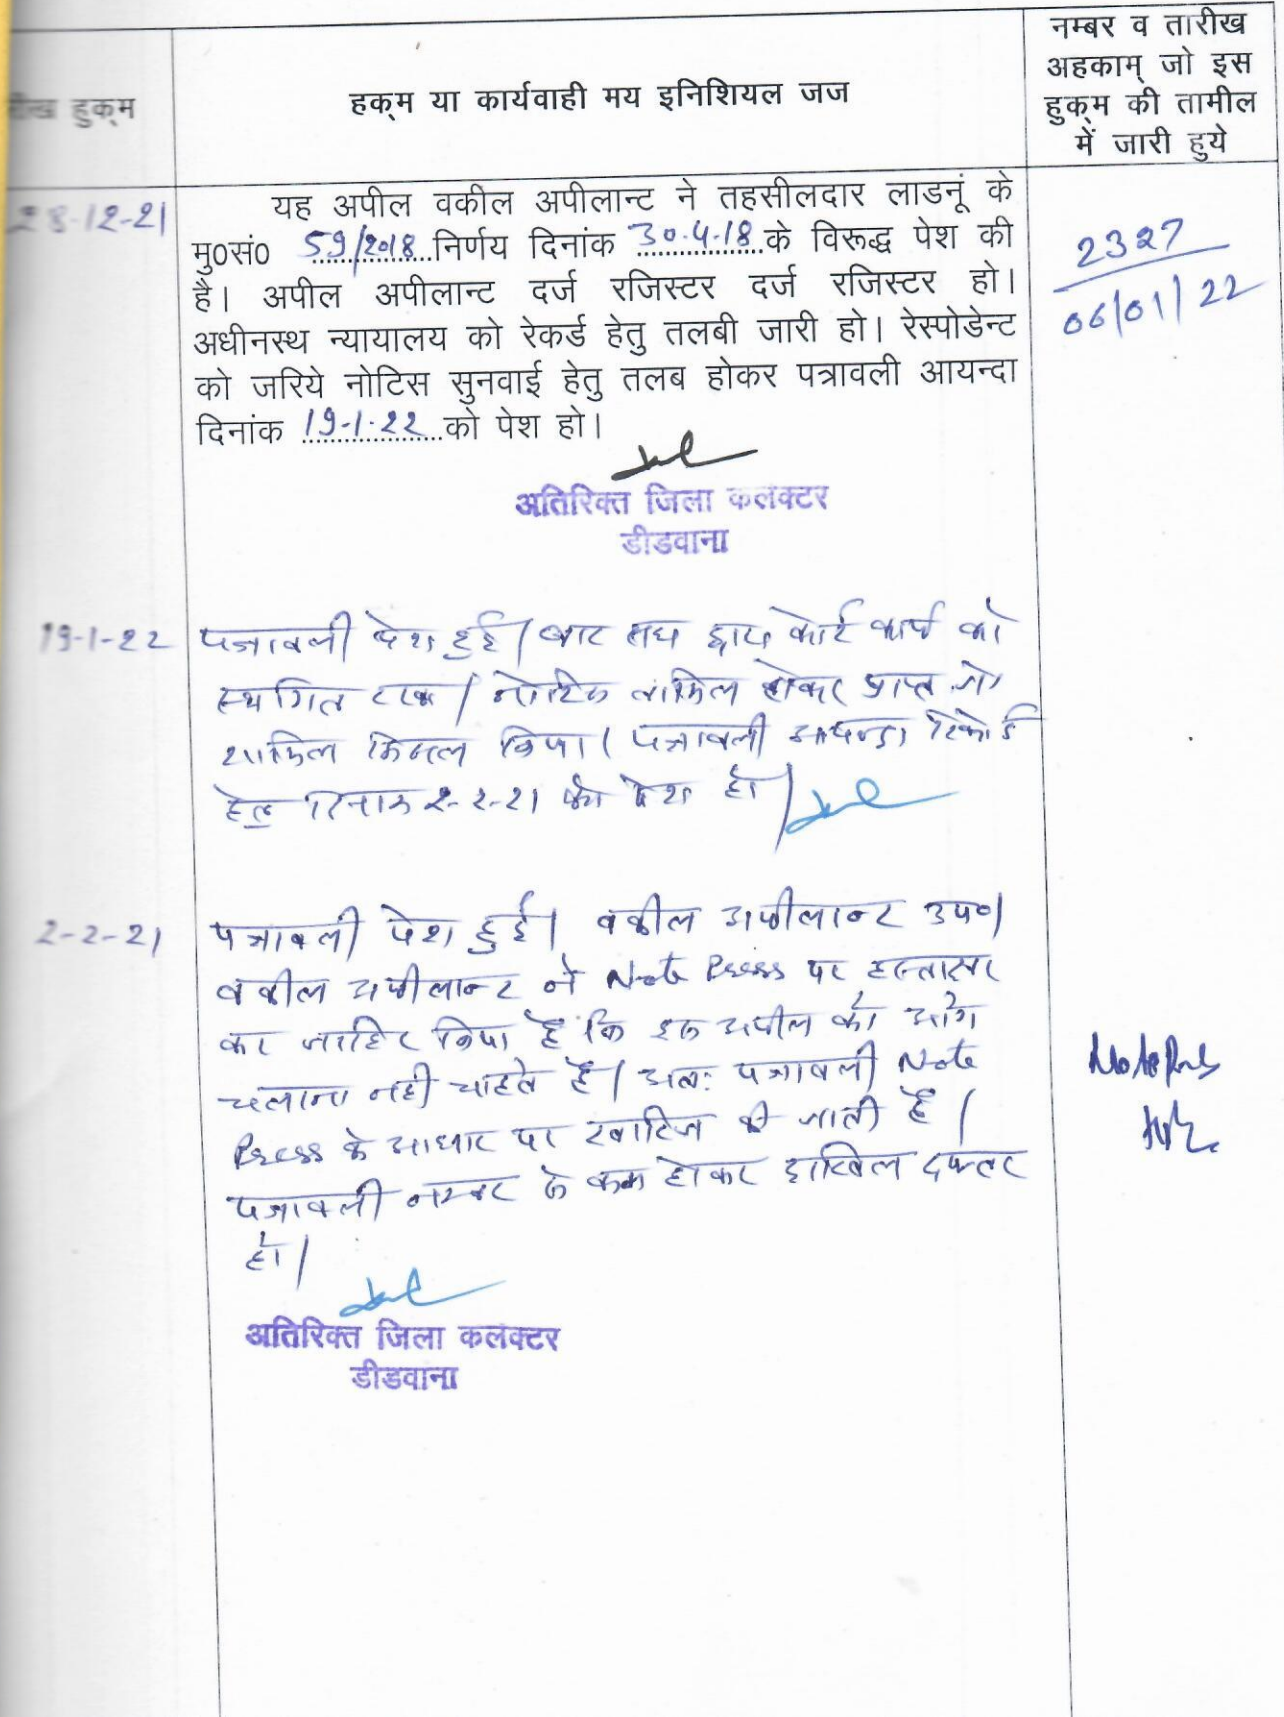 हुक्म
हक्म या कार्यवाही मय इनिशियल जज
नम्बर व तारीख
अहकाम् जो इस
हुक्म की तामील
में जारी हुये
28-12-21
यह अपील वकील अपीलान्ट ने तहसीलदार लाडनूं के
मु०सं० 59/2018 निर्णय दिनांक 30.4.18 के विरूद्ध पेश की
है। अपील अपीलान्ट दर्ज रजिस्टर दर्ज रजिस्टर हो।
अधीनस्थ न्यायालय को रेकर्ड हेतु तलबी जारी हो। रेस्पोडेन्ट
को जरिये नोटिस सुनवाई हेतु तलब होकर पत्रावली आयन्दा
दिनांक 19-1-22 को पेश हो।
2327
06/01/22
अतिरिक्त जिला कलक्टर
डीडवाना
19-1-22
पत्रावली पेश हुई। बार संघ द्वारा कोर्ट कार्य को
स्थगित रखा। नोटिस तामिल होकर प्राप्त जो
शामिल मिसल किया। पत्रावली आयन्दा रिकोर्ड
हेतु दिनांक 2-2-21 को पेश हो।
2-2-21
पत्रावली पेश हुई। वकील अपीलान्ट उप०।
वकील अपीलान्ट ने Note Press पर हस्ताक्षर
कर जाहिर किया है कि इस अपील को आगे
चलाना नहीं चाहते है। अतः पत्रावली Note
Press के आधार पर खारिज की जाती है।
पत्रावली नम्बर से कम होकर दाखिल दफ्तर
हो।
Note Press
अतिरिक्त जिला कलक्टर
डीडवाना